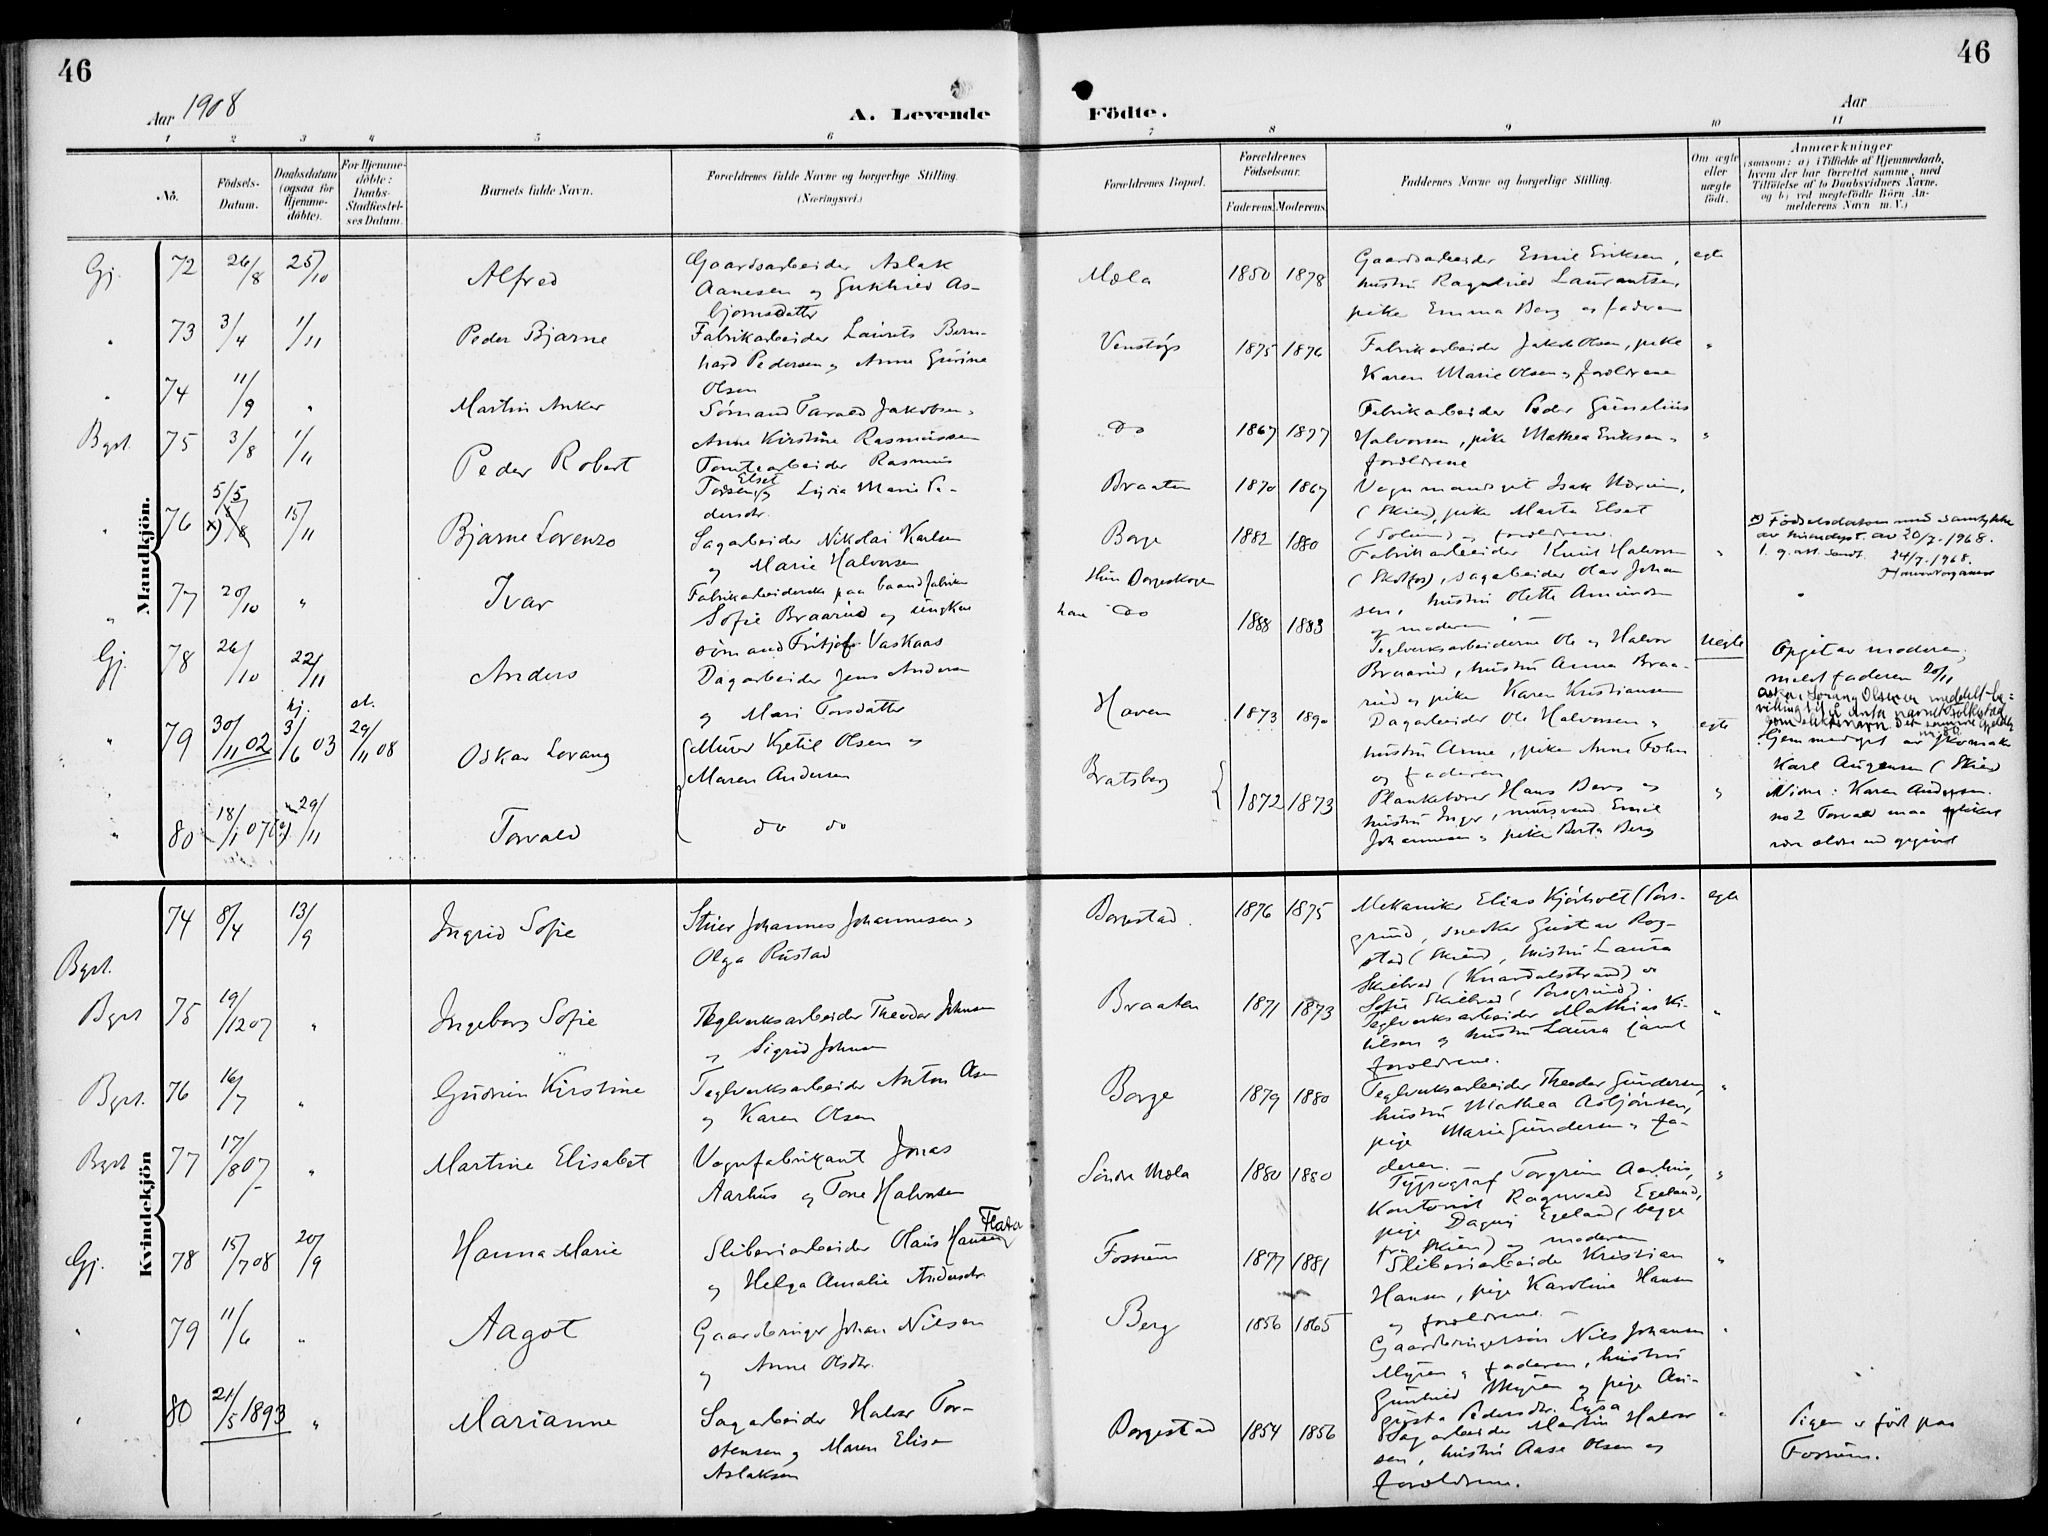 46
46
Aar 1908
A. Levende
Födte.
Aar
1 2 3 4 5 6 7 8 9 10 11
No.
Födsels-
Datum.
Daabsdatum
(ogsaa för
Hjemme-
döbte).
For Hjemme-
döbte:
Daabs-
Stadfæstel-
ses Datum.
Barnets fulde Navn.
Forældrenes fulde Navne og borgerlige Stilling.
(Næringsvei.)
Forældrenes Bopæl.
Forældrenes
Födselsaar.
Faderens. Moderens.
Faddernes Navne og borgerlige Stilling.
Om ægte
eller
uægte
födt.
Anmærkninger
(saasom: a) i Tilfælde af Hjemmedaab,
hvem der har forrettet samme, med
Tilföielse af to Daabsvidners Navne.
og b) ved uægtefödte Börn An-
melderens Navn m. V.)
Mandkjön.
Gj. 72 26/8 25/10 Alfred
Gaardsarbeider Aslak
Aanesen og Gunhild As-
bjornsdatter
Mæla 1850 1878
Gaardsarbeider Emil Eriksen,
hustru Ragnhild Laurantsen,
pike Emma Berg og faderen
egte
" 73 3/4 1/11 Peder Bjarne
Fabrikarbeider Laurits Bern-
hard Pedersen og Anne Gurine
Olsen
Venstøp 1875 1876
Fabrikarbeider Jakob Olsen, pike
Karen Marie Olsen og foreldrene
"
" 74 11/9 " Martin Anker
Sømand Tarald Jakobsen og
Anne Kirstine Rasmussen
Do 1867 1877
Fabrikarbeider Peder Gunelius
Halvorsen, pike Mathea Eriksen og
foreldrene
"
Bgst. 75 3/8 1/11 Peder Robert
Tomtearbeider Rasmus
Elset
og Lysia Marie Pe-
dersdtr.
Braaten 1870 1867
Vognmand Isak
(Skien), pike Marta Elset
(Solum) og foreldrene.
" 76 5/5
x) 5/8 15/11 Bjarne Lorenzo
Sagarbeider Nikolai Karlsen
og Marie Halvorsen
Borge 1882 1880
Fabrikarbeider Knut Halvorsen
(Skotfos), sagarbeider Olav Johan
sen, hustru Olette Amundsen
og moderen
"
x) Fødselsdatoen med samtykke
av 20/7-1968.
24/7-1968.
" 77 20/10 " Ivar
Fabrikarbeiderske paa baandfabriken
Sofie Braarud og ungkar
sømand Fritjof Vaskaas
Hun Borgeskogen
han Do 1888 1883
Teglverksarbeiderne Ole og Halvor
Braarud, hustru Anna Braa-
rud og piken Karen Kristiansen
uegte
Opgit av moderen,
meldt faderen 20/11
Gj. 78 26/10 22/11 Anders
Dagarbeider Jens Andersen
og Mari Torsdatter
Haven 1873 1890
Dagarbeider Ole Halvorsen og
hustru Anne, pike Anne
og faderen
egte
" 79 30/11 02 hj. 3/6 03 st. 29/11 08 Oskar Lorang
Murer Kjetil Olsen og
Maren Andersen
Bratsberg 1872 1873
Plankebærer Hans Berg og
hustru Inger, murersvend Emil
Johannesen og pike Berta Berg
"
Hjemmedøpt av Skomaker
Karl Augensen (Skien)
Vidne: Karen Andersen.
" 80 18/1 07 29/11 Torvald
do do
no 2 Torvald maa
være ældre end opgivet
Kvindekjön
Bgst. 74 8/4 13/9 Ingrid Sofie
Johannes Johannesen og
Olga Rustad
Borgestad. 1876 1875
Mekaniker Elias Kjørholt (Pors-
grund, snedker Gustav Rog-
stad (Skien), hustru Laura
Skilbred (Knardalsstrand) og
Sofie Skilbred (Porsgrund).
egte
Bgst 75 19/12 07 " Ingeborg Sofie
Teglverksarbeider Theodor Johnsen
og Sigrid Johnsen
Braaten 1871 1873
Teglverksarbeider Mathias Ki-
ilsen og hustru Laura samt
foreldrene.
"
Bgst. 76 16/7 " Gudrun Kirstine
Teglverksarbeider Anton Olsen
og Karen Olsen
Borge 1879 1880
Teglverksarbeider Theodor Gundersen,
hustru Mathea Asbjørnsen,
pige Marie Gundersen og fa-
deren.
"
Bgst 77 17/8 07 " Martine Elisabet
Vognfabrikant Jonas
Aarhus og Tone Halvorsen
Søndre Mæla 1880 1880
Typograf Torgrim Aarhus,
Kontorist Ragnvald Egeland,
pige Dagny Egeland (begge
fra Skien) og moderen
"
Gj. 78 15/7 08 20/9 Hanna Marie
Sliberiarbeider Olaus Hansen
og Helga Amalie Andersdtr.
Fossum 1877 1881
Sliberiarbeider Kristian
Hansen, pige Karoline Hansen
og foreldrene.
"
" 79 11/6 " Aagot
Gaardbruger Johan Nilsen
og Anne Olsdtr.
Berg 1856 1865
Gaardbrugersøn Nils Johansen
Myren og faderen, hustru
Gunhild Myren og pige Au-
gusta Pedersdtr. Lysa
"
" 80 21/5 1893 " Marianne
Sagarbeider Halvor Tor-
stensen og Maren Elise
Aslaksen
Borgestad 1854 1856
Sagarbeider Martin Halvor
sen, hustru Aase Olsen og
foreldrene.
"
Pigen er født paa
Fossum.